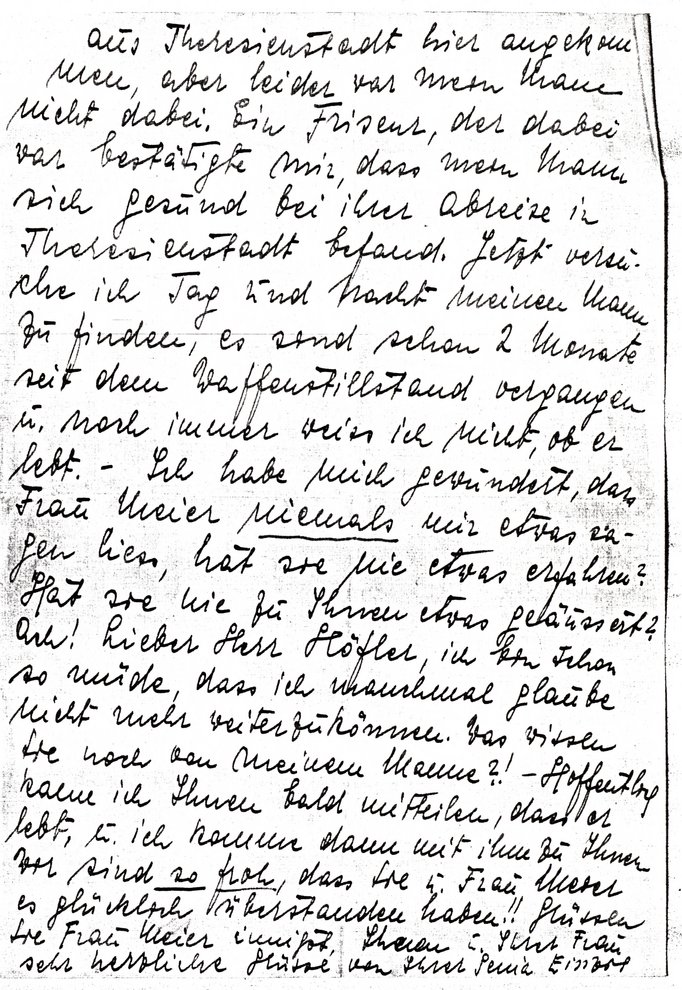 aus Theresienstadt hier angekom
men, aber leider war mein Mann
nicht dabei. Ein Friseur, der dabei
war bestätigte mir, dass mein Mann
sich gesund bei ihrer Abreise in
Theresienstadt befand. Jetzt versu-
che ich Tag und Nacht meinen Mann
zu finden, es sind schon 2 Monate
seit dem Waffenstillstand vergangen
u. noch immer weiss ich nicht, ob er
lebt. - Ich habe mich gewundert, dass
Frau Meier niemals mir etwas sa-
gen liess, hat sie nie etwas erfahren?
Hat sie nie zu Ihnen etwas geäussert?
Ach! Lieber Herr Höfler, ich bin schon
so müde, dass ich manchmal glaube
nicht mehr weiterzukönnen. Was wissen
Sie noch von meinem Manne?! - Hoffentlich
kann ich Ihnen bald mitteilen, dass er
lebt, u. ich komme dann mit ihm zu Ihnen
Wir sind so froh, dass Sie u. Frau Meier
es glücklich überstanden haben!! Grüssen
Sie Frau Meier innigst, Ihnen u. Ihrer Frau
sehr herzliche Grüsse von Ihrer